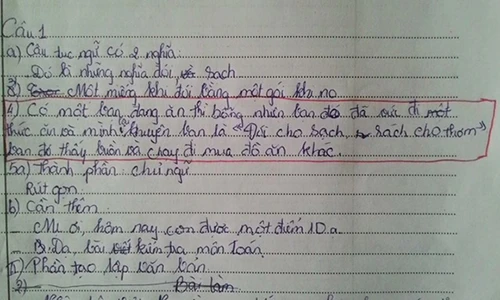 Câu 1
a) Câu tục ngữ có 2 nghĩa.
Đó là những nghĩa đói, sạch
3) Một miếng khi đói bằng một gói khi no
4) Có một bạn đang ăn thì bỗng nhiên bạn đó đã vứt đi một
thức ăn và mình khuyên bạn là "Đói cho sạch, sách cho thơm"
bạn đó thấy buồn và chạy đi mua đồ ăn khác.
5a) thành phần chủ ngữ
Rút gọn
b) Cần thêm
- Mẹ ơi, hôm nay con được một điểm 10 ạ
- Dạ, bài kiểm tra môn toán.
II) Phần tạo lập văn bản
2) Bài làm